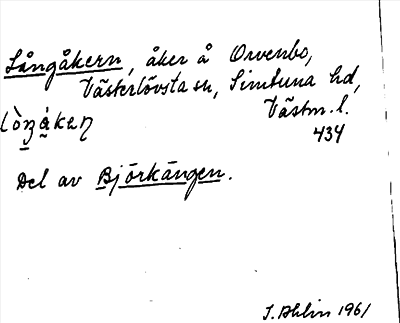 Långåkern, åker å Orvenbo,
Västerlövsta sn, Simtuna hd,
Västm. l.
lòŋákeɳ
434
Del av Björkängen.
J. Ahlin 1961